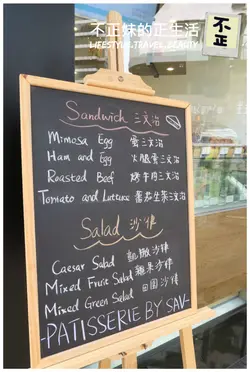 不正妹的正生活
LIFESTYLE.TRAVEL.BEAUTY
不正
Sandwich 三文治
Mimosa Egg 蛋三文治
Ham and Egg 火腿蛋三文治
Roasted Beef 燒牛肉三文治
Tomato and Luttuce 番茄生菜三文治
Salad 沙律
Caesar Salad 凱撒沙律
Mixed Fruit Salad 雜果沙律
Mixed Green Salad 田園沙律
-PATISSERIE BY SAV-